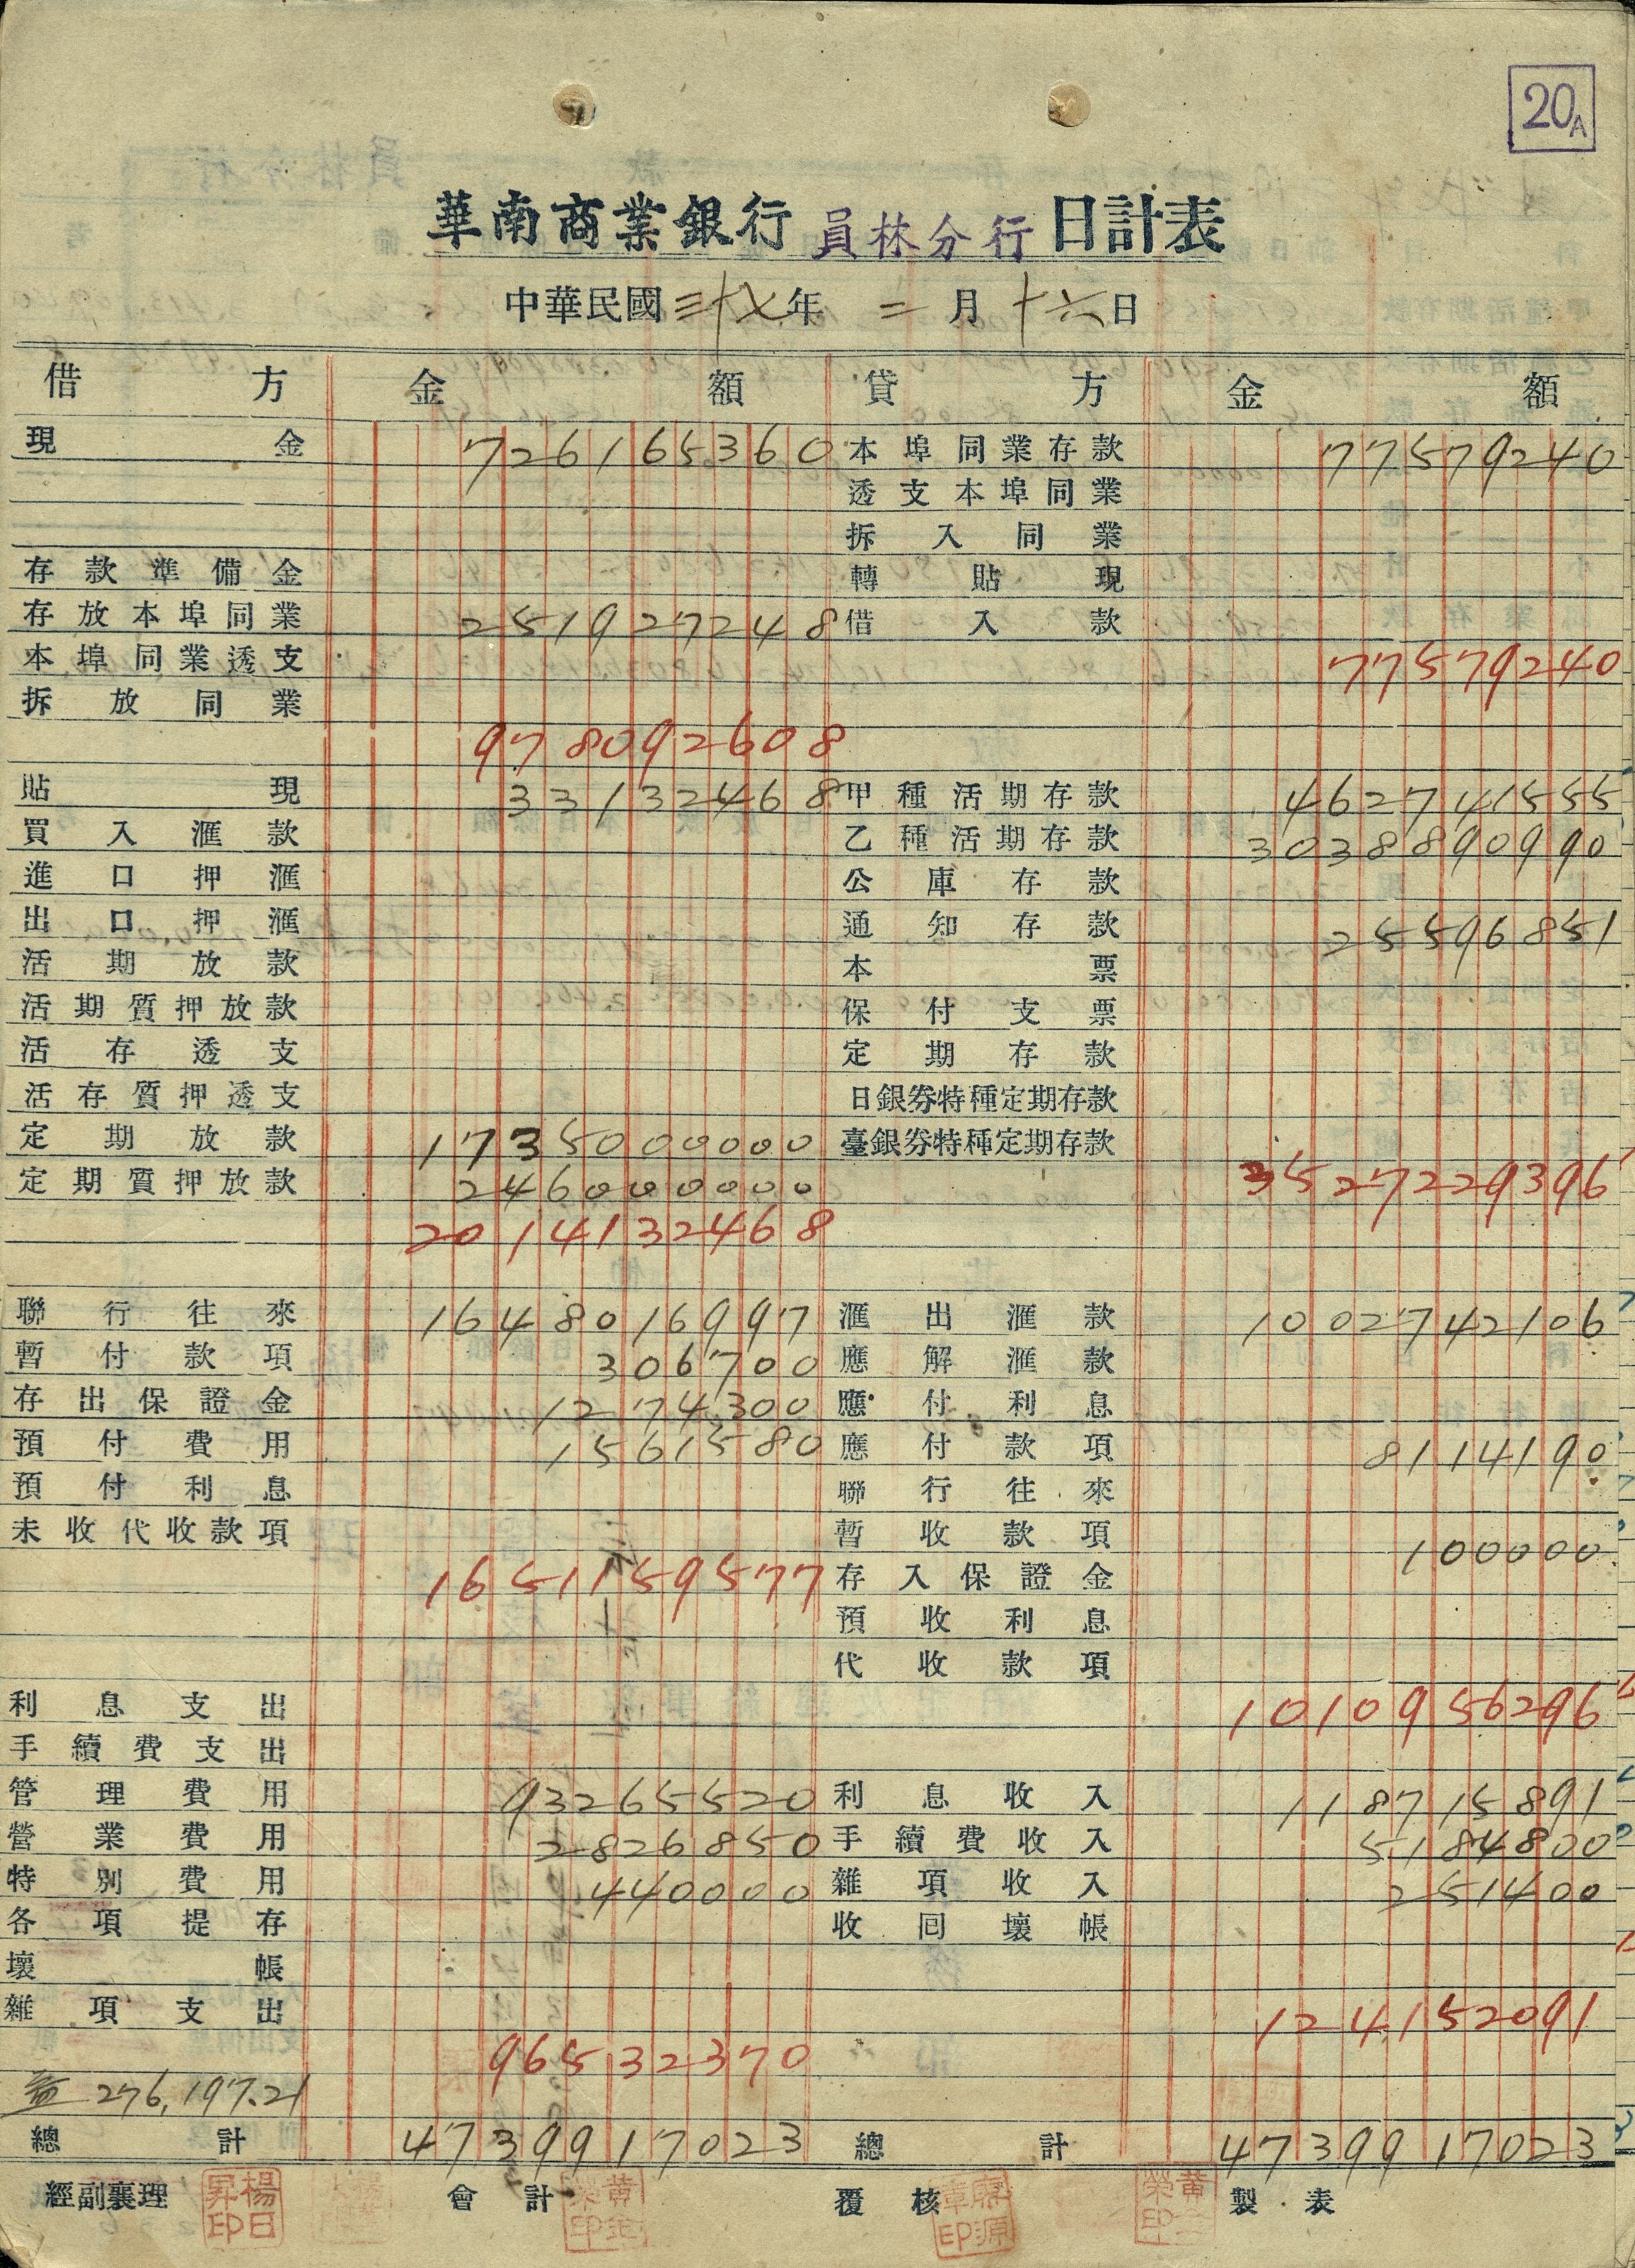 20A
華南商業銀行 員林分行 日計表
中華民國三十七年 二月十六日
借方 金額 貸方 金額
現金 726165360 本埠同業存款 77579240
透支本埠同業
拆入同業
存款準備金 轉貼現
存放本埠同業 251927248 借入款
本埠同業透支 77579240
拆放同業
978092608
貼現 33132468 甲種活期存款 462741555
買入滙款 乙種活期存款 3038890990
進口押滙 公庫存款
出口押滙 通知存款 25596851
活期放款 本票
活期質押放款 保付支票
活存透支 定期存款
活存質押透支 日銀券特種定期存款
定期放款 1735000000 臺銀券特種定期存款
定期質押放款 246000000 3527229396
2014132468
聯行往來 1648016997 滙出滙款 1002742106
暫付款項 306700 應解滙款
存出保證金 1274300 應付利息
預付費用 1561580 應付款項 8114190
預付利息 聯行往來
未收代收款項 暫收款項 100000
1651159577 存入保證金
預收利息
代收款項
利息支出 1010956296
手續費支出
管理費用 93265520 利息收入 118715891
營業費用 2826850 手續費收入 5184800
特別費用 440000 雜項收入 251400
各項提存 收囘壞帳
壞帳
雜項支出 124152091
96532370
益 276,197.21
總計 4739917023 總計 4739917023
經副襄理 楊日昇印 會計 黃榮印 覆核 源章印 製表 黃榮印